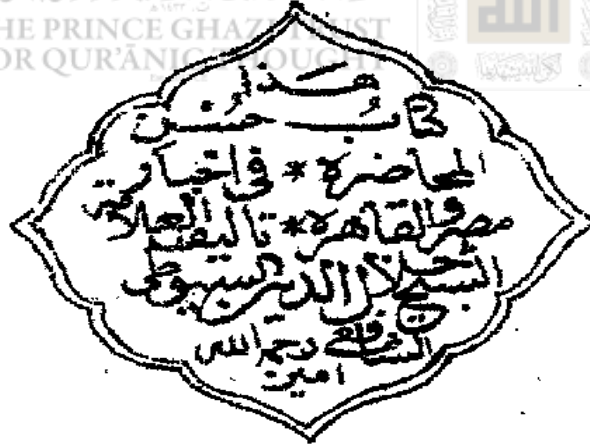 THE PRINCE GHAZI TRUST
FOR QUR'ĀNIC THOUGHT
هذا
كتاب حسن
المحاضرة * في اخبار
مصر والقاهرة * تاليف العلامة
الشيخ جلال الدين السيوطي
الشافعي رحمه الله
امين